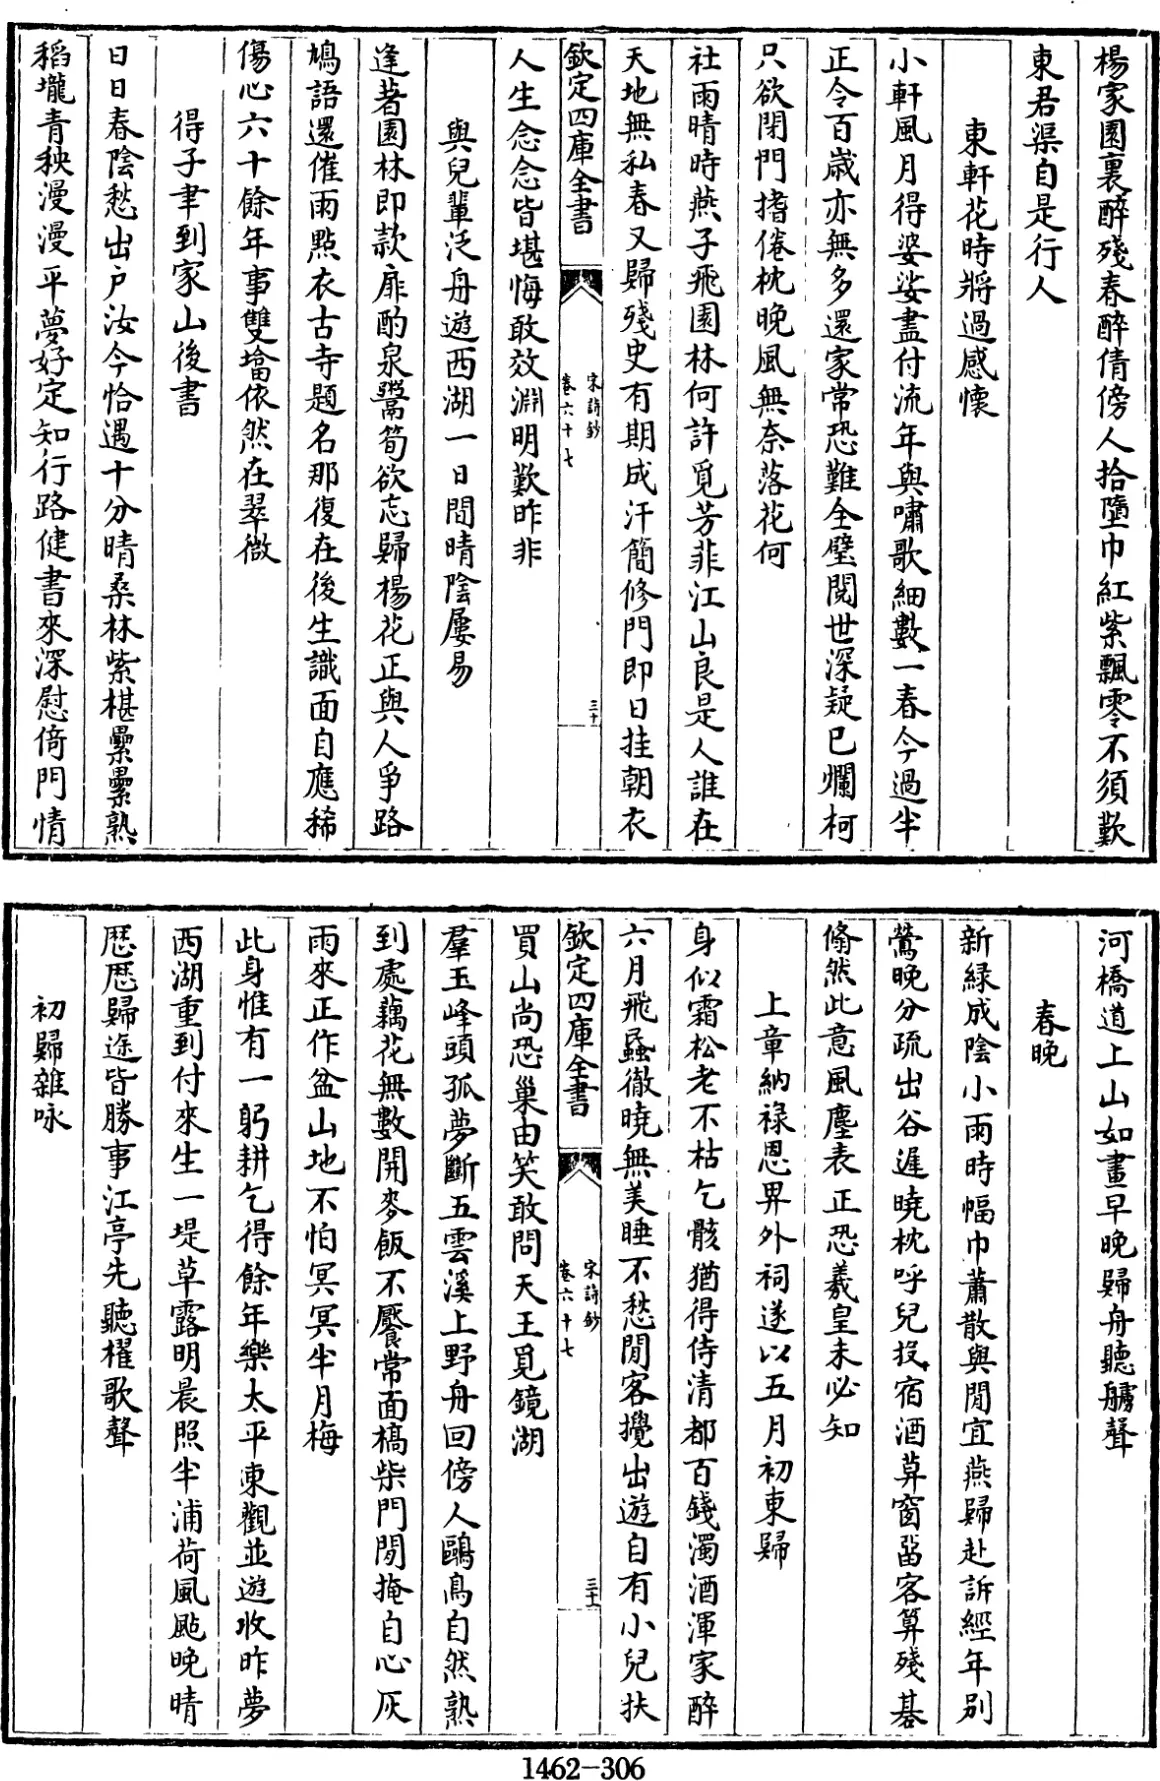 楊家園裏醉殘春醉倩傍人拾墮巾紅紫飄零不須歎
東君渠自是行人
東軒花時將過感懷
小軒風月得婆娑盡付流年與嘯歌細數一春今過半
正令百歲亦無多還家常恐難全璧閱世深疑已爛柯
只欲閉門搘倦枕晚風無奈落花何
社雨晴時燕子飛園林何許覓芳菲江山良是人誰在
天地無私春又歸殘史有期成汗簡修門即日挂朝衣
欽定四庫全書
宋詩鈔
卷六十七
三十
人生念念皆堪悔敢效淵明歎昨非
與兒輩泛舟遊西湖一日間晴陰屢易
逢著園林即款扉酌泉鬻筍欲忘歸楊花正與人爭路
鳩語還催雨點衣古寺題名那復在後生識面自應稀
傷心六十餘年事雙塔依然在翠微
得子聿到家山後書
日日春陰愁出戶汝今恰遇十分晴桑林紫椹纍纍熟
稻壠青秧漫漫平夢好定知行路健書來深慰倚門情
河橋道上山如畫早晚歸舟聽艣聲
春晚
新綠成陰小雨時幅巾蕭散與閒宜燕歸赴訴經年別
鶯晚分疏出谷遲曉枕呼兒投宿酒萛窗畱客算殘棊
翛然此意風塵表正恐羲皇未必知
上章納祿恩畀外祠遂以五月初東歸
身似霜松老不枯乞骸猶得侍清都百錢濁酒渾家醉
六月飛蟁徹曉無美睡不愁閒客攪出遊自有小兒扶
欽定四庫全書
宋詩鈔
卷六十七
三十一
買山尚恐巢由笑敢問天王覓鏡湖
羣玉峰頭孤夢斷五雲溪上野舟回傍人鷗鳥自然熟
到處藕花無數開麥飯不饜常面槁柴門閒掩自心灰
雨來正作盆山地不怕冥冥半月梅
此身惟有一躬耕乞得餘年樂太平東觀並遊收昨夢
西湖重到付來生一堤草露明晨照半浦荷風颭晚晴
歷歷歸途皆勝事江亭先聽櫂歌聲
初歸雜咏
1462-306